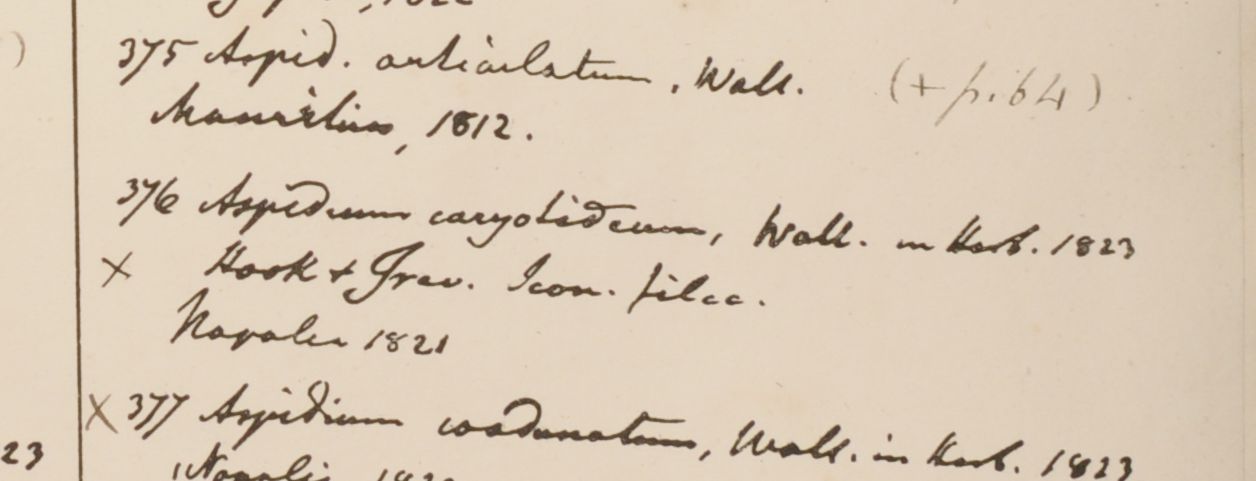 , 1822
375 Aspid. articulatum, Wall. (+ p. 64)
Mauritius, 1812.
376 Aspidium caryotideum, Wall. in Herb. 1823
× Hook & Grev. Icon. filcc.
Napalia 1821
× 377 Aspidium coadunatum, Wall. in Herb. 1823
23
Napalia